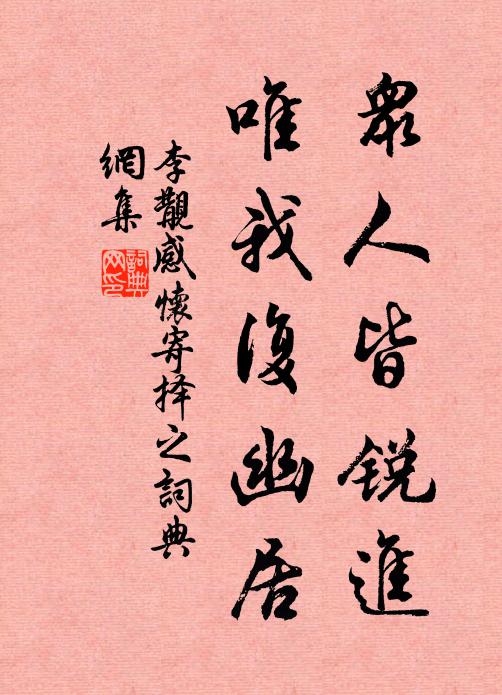 眾人皆銳進
唯我復幽居
李觀感懷寄择之詞典
網集
詞典
网印